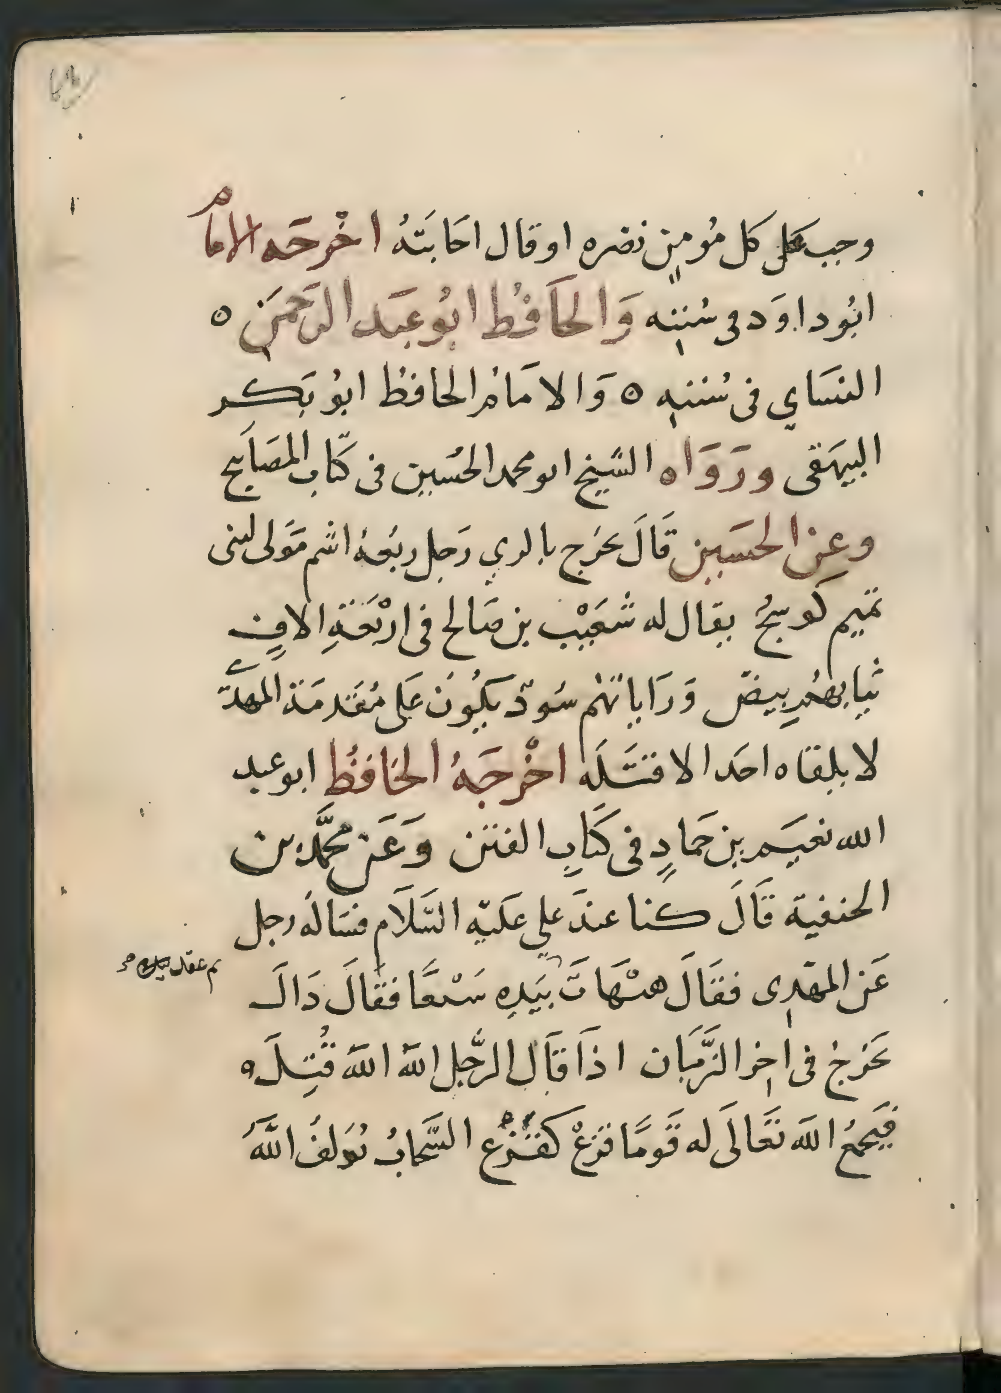 وجب على كل مُومِنٍ نصره او قال احَابَتهُ اخْرَجَه الامامُ
ابُو داوَد فى سُننِه وَالحَافظُ ابُو عَبَد الرَحمَنِ ٥
النسَاي فى سُننِه ٥ وَالامَامُ الحافظُ ابو بَكر
البيهَقى ورَوَاه الشيخ ابو محمد الحُسَين فى كتاب المصَابيح
وعن الحسَين قَالَ يخرُج بالري رَجل ربعَهُ اشم مَولى لبنى
تميم كوسجُ يقال له شعَيْب بن صَالح فى اربَعَةِ الافٍ
ثيابهُم بيض وَرَاياتهُم سُودٌ يكُونُ عَلى مُقَدمَة المهدىّ
لا يلقاه احَد الا قتَلَه اخْرَجَهُ الحَافظُ ابو عبد
الله نعَيم بن حَمادٍ فى كتَابِ الفتن وَعَن محمَّد بن
الحنفية قَالَ كنا عندَ علي عَليَه السَّلَام فسَاله رجل
عَن المهَدى فقَالَ هيْهَاتَ بيَدِه سَبْعًا فقَالَ ذَالَك
يَخرُج فى اخِر الزَّمَان اذَا قَالَ الرَّجُل اللهَ اللهَ قُتِلَ ٥
فيَجمَعُ الله تعَالَى له قَومًا قزعْ كقزْع السَّحَابُ يُؤَلفُ اللهُ
ثم عقد